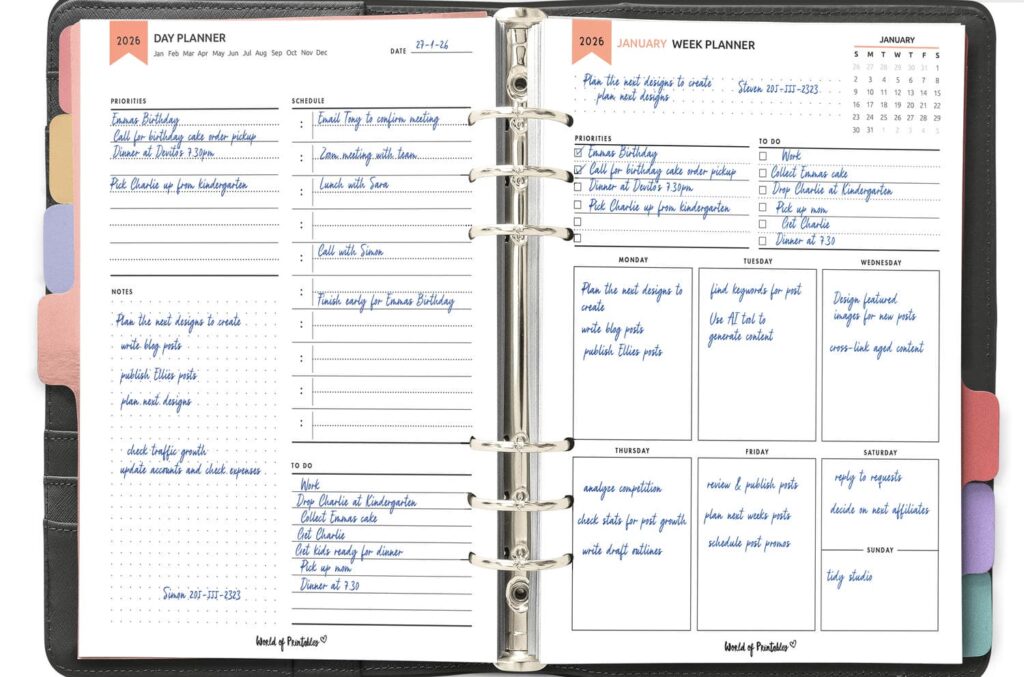 2026
DAY PLANNER
Jan Feb Mar Apr May Jun Jul Aug Sep Oct Nov Dec
DATE 27-1-26
PRIORITIES
Emmas Birthday
Call for birthday cake order pickup
Dinner at Devito's 7.30pm
Pick Charlie up from kindergarten
NOTES
Plan the next designs to create
write blog posts
publish Ellies posts
plan next designs
check traffic growth
update accounts and check expenses
Simon 205-111-2323
SCHEDULE
: Email Tony to confirm meeting
: Zoom meeting with team
: Lunch with Sara
:
: Call with Simon
: Finish early for Emmas Birthday
:
:
:
:
TO DO
Work
Drop Charlie at Kindergarten
Collect Emmas cake
Get Charlie
Get kids ready for dinner
Pick up mom
Dinner at 7.30
World of Printables
2026
JANUARY WEEK PLANNER
Plan the next designs to create
plan next designs
Steven 205-111-2323
JANUARY
S M T W T F S
26 27 28 29 30 31 1
2 3 4 5 6 7 8
9 10 11 12 13 14 15
16 17 18 19 20 21 22
23 24 25 26 27 28 29
30 31 1 2 3 4 5
PRIORITIES
Emmas Birthday
Call for birthday cake order pickup
Dinner at Devito's 7.30pm
Pick Charlie up from kindergarten
TO DO
Work
Collect Emmas cake
Drop Charlie at Kindergarten
Pick up mom
Get Charlie
Dinner at 7.30
MONDAY
Plan the next designs to
create
write blog posts
publish Ellies posts
TUESDAY
find keywords for post
Use AI tool to
generate content
WEDNESDAY
Design featured
images for new posts
cross-link aged content
THURSDAY
analyze competition
check stats for post growth
write draft outlines
FRIDAY
review & publish posts
plan next weeks posts
schedule post promos
SATURDAY
reply to requests
decide on next affiliates
SUNDAY
tidy studio
World of Printables